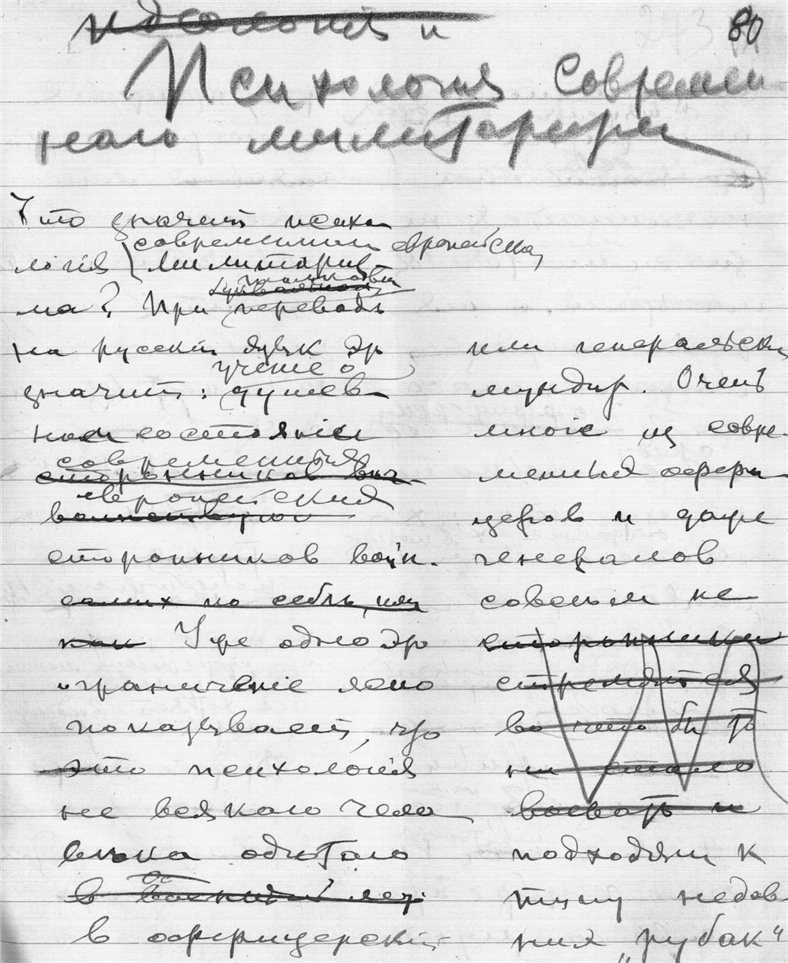 80
идеология и
Психология современ-
ного милитаризма
Что значит психо
современный европейский
логия милитариз-
ма? При переводѣ
на русскій языкъ это
ученіе о
значитъ: душев-
ном состояніи
современныхъ
сторонниковъ
европейскихъ
сторонниковъ войн.
самих по себѣ, или
как Уже одно это
ограниченіе ясно
показываетъ, что
это психологія
не всякаго чело
вѣка одѣтаго
в военный
в офицерскій
или генеральскій
мундир. Очень
многіе из совре-
менныхъ офи-
церов и даже
генералов
совсѣм не
сторонники
стремятся
во что бы то
ни стало
воевать и
подходят к
типу недав
них „рубак“